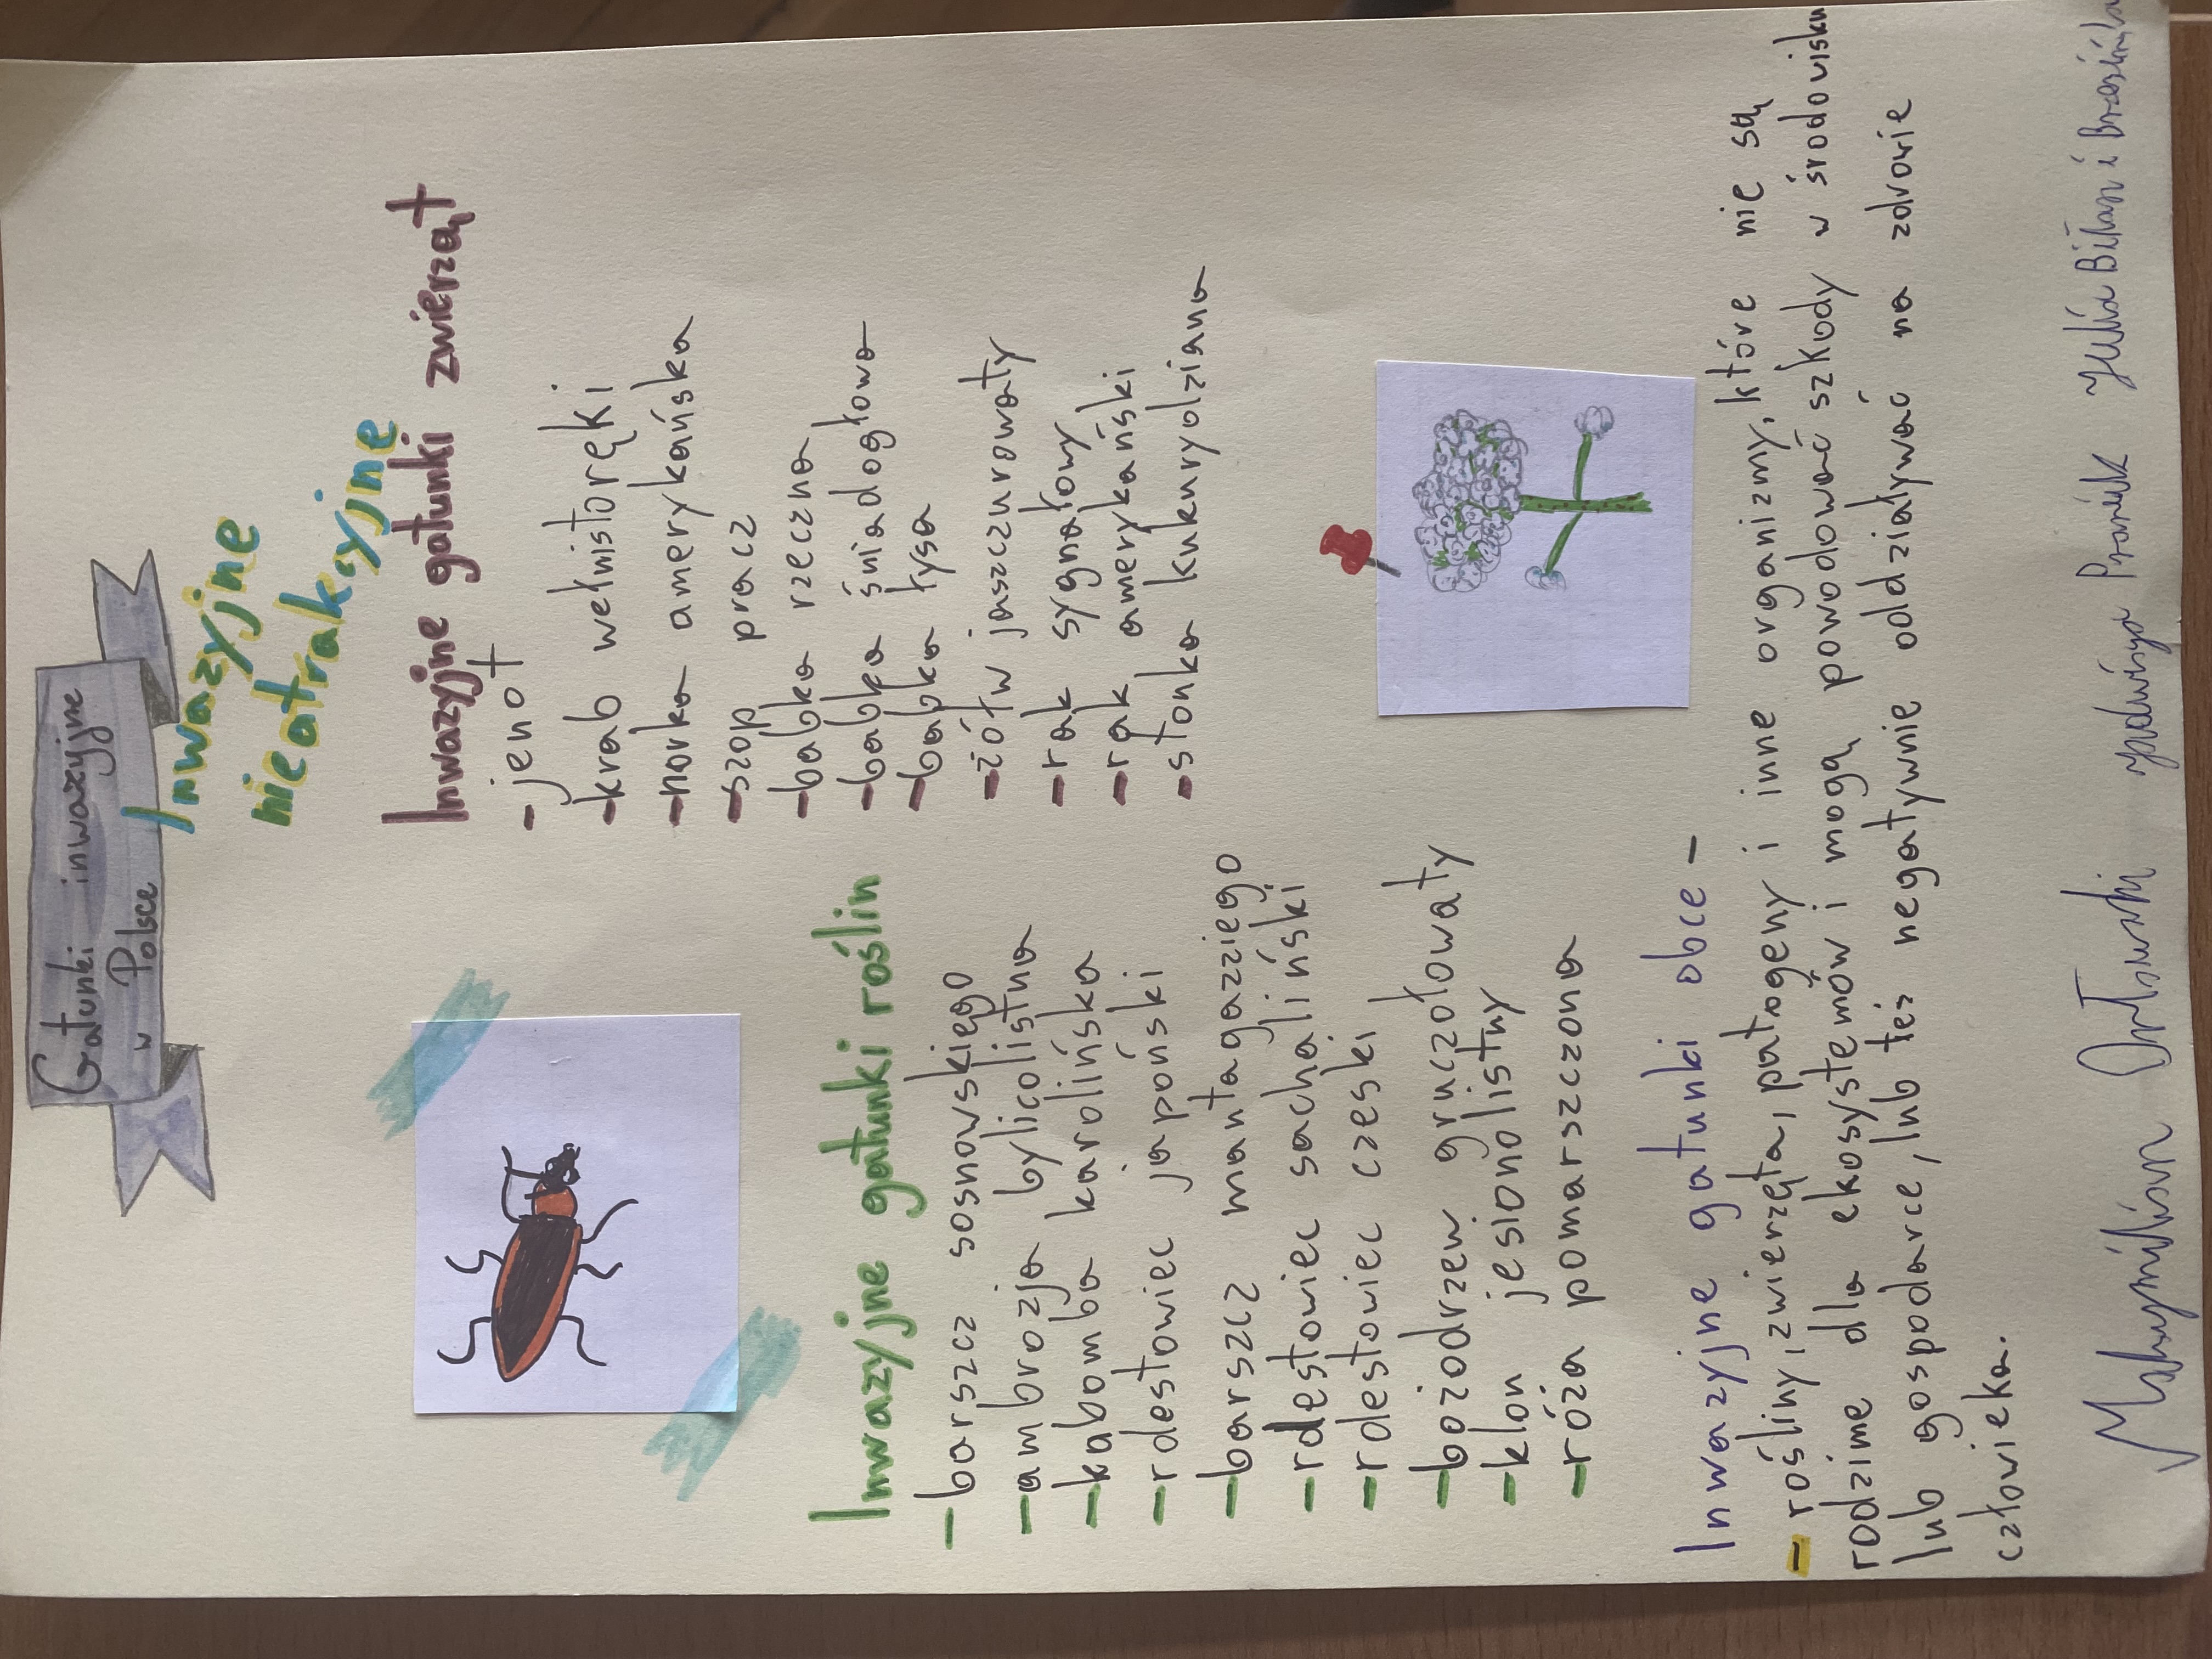 Gatunki inwazyjne
w Polsce
Inwazyjne
nieatrakcyjne
Inwazyjne gatunki zwierząt
- jenot
- krab wełnistoręki
- norka amerykańska
- szop pracz
- babka rzeczna
- babka śniadogłowa
- babka łysa
- żółw jaszczurowaty
- rak sygnałowy
- rak amerykański
- stonka kukurydziana
Inwazyjne gatunki roślin
- barszcz sosnowskiego
- ambrozja bylicolistna
- kabomba karolińska
- rdestowiec japoński
- barszcz mantagazziego
- rdestowiec sachaliński
- rdestowiec czeski
- bożodrzew gruczołowaty
- klon jesionolistny
- róża pomarszczona
Inwazyjne gatunki obce -
- rośliny, zwierzęta, patogeny i inne organizmy, które nie są
rodzime dla ekosystemów i mogą powodować szkody w środowisku
lub gospodarce, lub też negatywnie oddziaływać na zdrowie
człowieka.
Orłowski Julia i